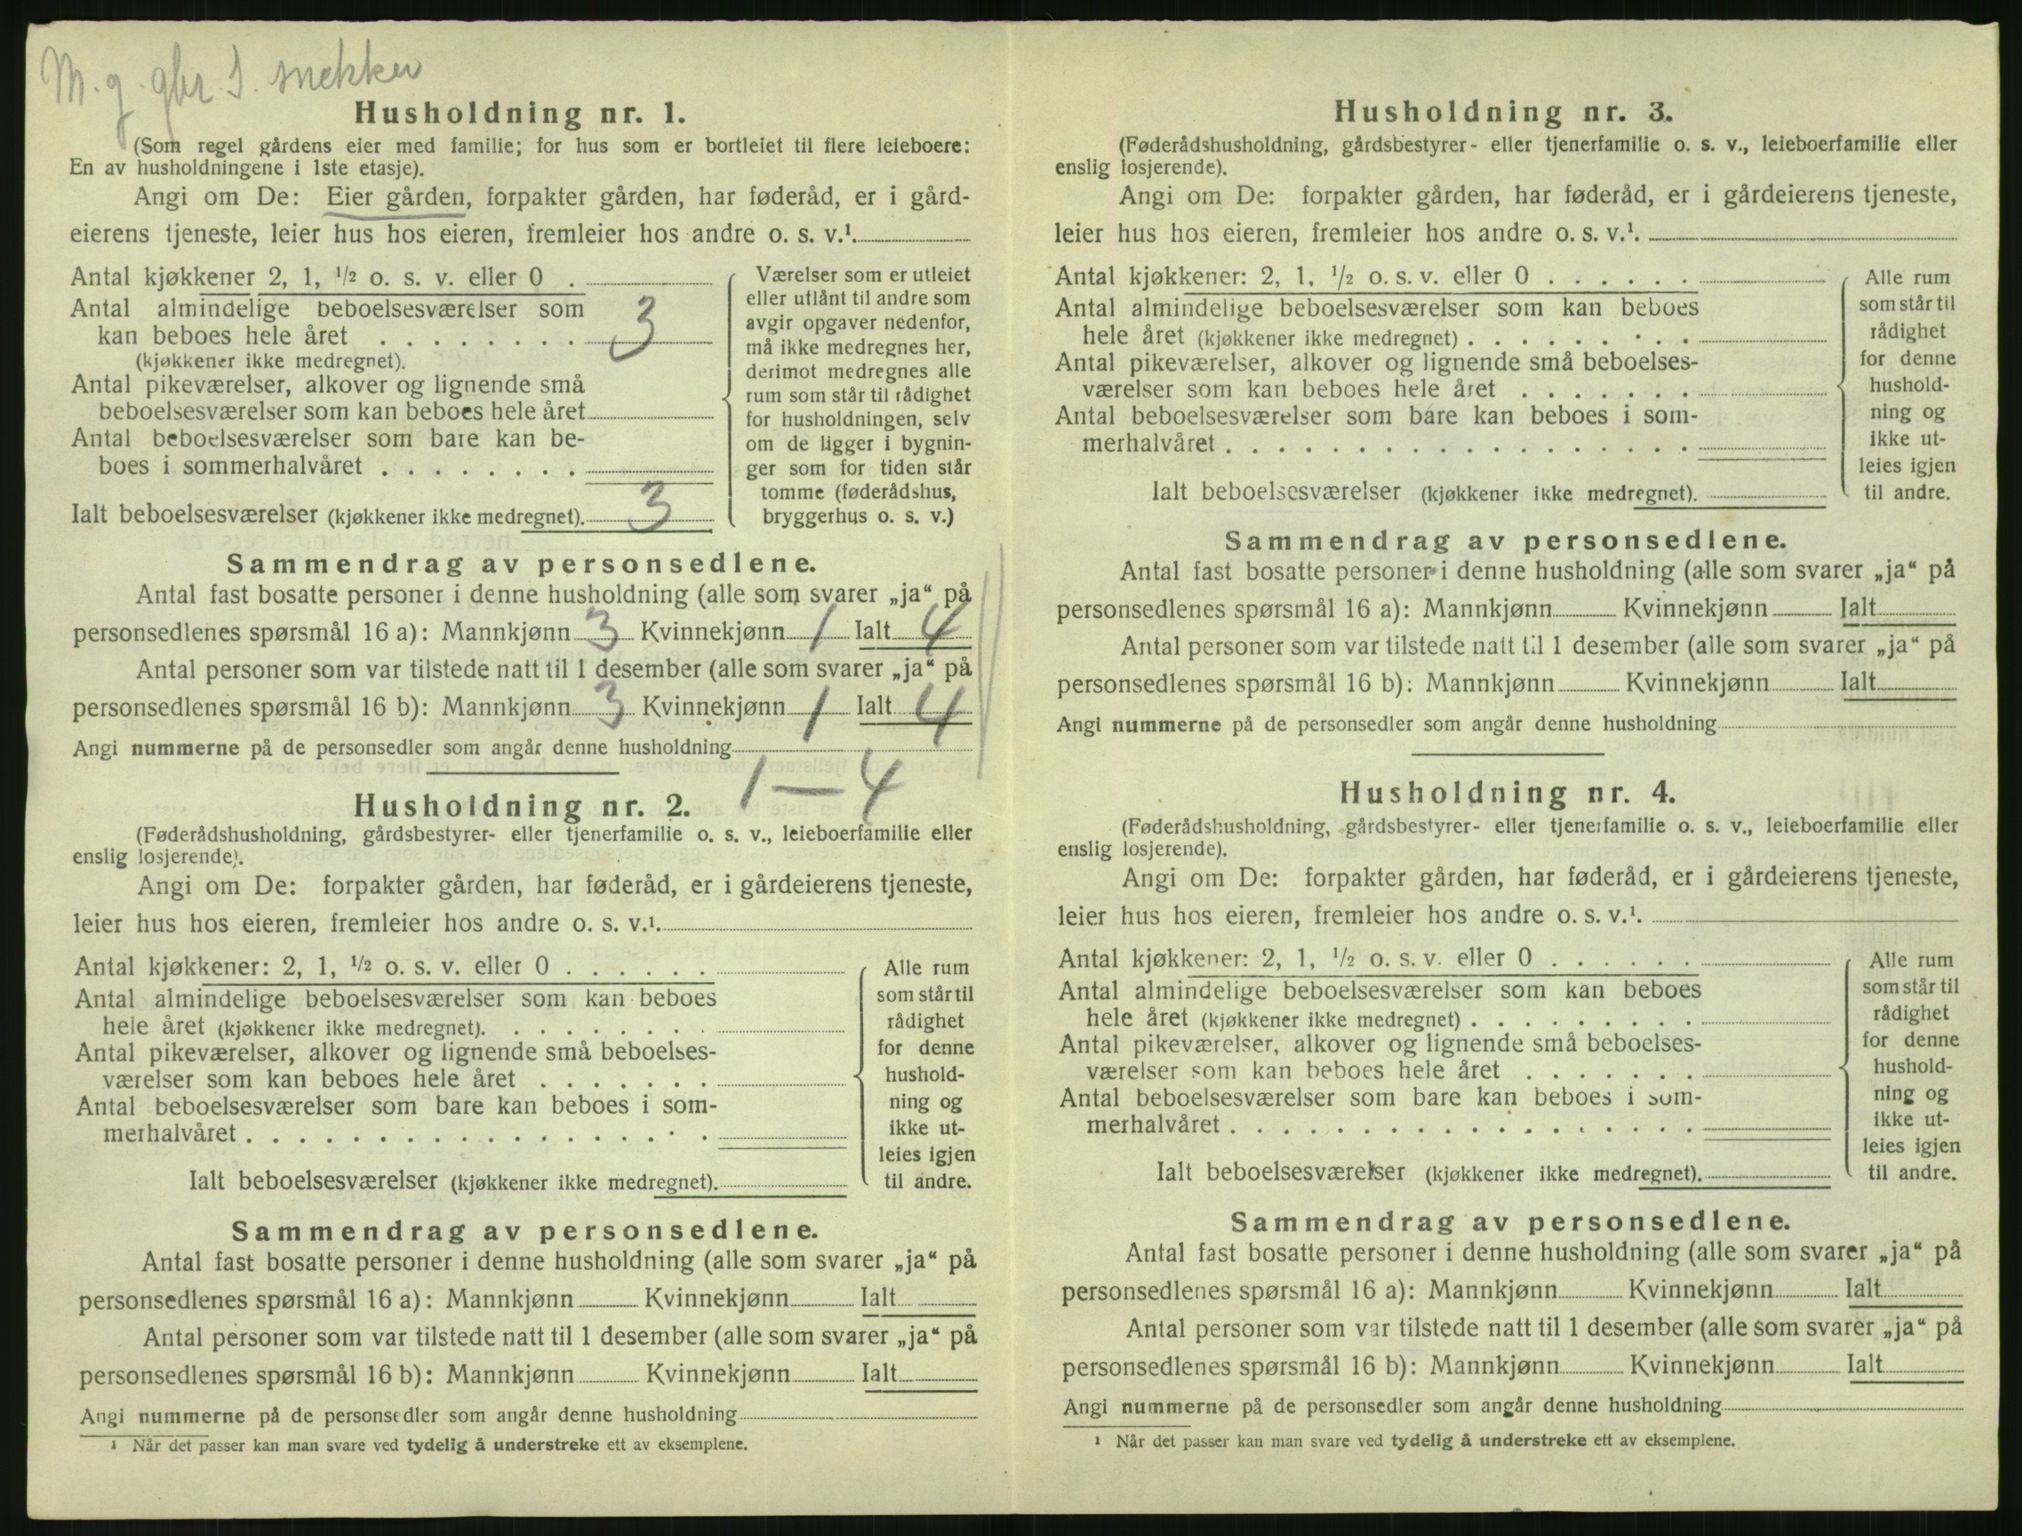 M. g. gbr. S. snekker
Husholdning nr. 1.
(Som regel gårdens eier med familie; for hus som er bortleiet til flere leieboere:
En av husholdningene i 1ste etasje).
Angi om De: Eier gården, forpakter gården, har føderåd, er i gård-
eierens tjeneste, leier hus hos eieren, fremleier hos andre o. s. v.¹.
Antal kjøkkener 2, 1, ½ o. s. v. eller 0 .
Antal almindelige beboelsesværelser som
kan beboes hele året . . . . . . . . 3
(kjøkkener ikke medregnet).
Antal pikeværelser, alkover og lignende små
beboelsesværelser som kan beboes hele året
Antal beboelsesværelser som bare kan be-
boes i sommerhalvåret . . . . . . . .
Ialt beboelsesværelser (kjøkkener ikke medregnet). 3
Værelser som er utleiet
eller utlånt til andre som
avgir opgaver nedenfor,
må ikke medregnes her,
derimot medregnes alle
rum som står til rådighet
for husholdningen, selv
om de ligger i bygnin-
ger som for tiden står
tomme (føderådshus,
bryggerhus o. s. v.)
Sammendrag av personsedlene.
Antal fast bosatte personer i denne husholdning (alle som svarer „ja“ på
personsedlenes spørsmål 16 a): Mannkjønn 3 Kvinnekjønn 1 Ialt 4
Antal personer som var tilstede natt til 1 desember (alle som svarer „ja“ på
personsedlenes spørsmål 16 b): Mannkjønn 3 Kvinnekjønn 1 Ialt 4
Angi nummerne på de personsedler som angår denne husholdning
1 — 4
Husholdning nr. 2.
(Føderådshusholdning, gårdsbestyrer- eller tjenerfamilie o. s. v., leieboerfamilie eller
enslig losjerende).
Angi om De: forpakter gården, har føderåd, er i gårdeierens tjeneste,
leier hus hos eieren, fremleier hos andre o. s. v.¹.
Antal kjøkkener: 2, 1, ½ o. s. v. eller 0 . . . . . .
Antal almindelige beboelsesværelser som kan beboes
hele året (kjøkkener ikke medregnet). . . . . . . . .
Antal pikeværelser, alkover og lignende små beboelses-
værelser som kan beboes hele året . . . . . . .
Antal beboelsesværelser som bare kan beboes i som-
merhalvåret . . . . . . . . . . . . . . . . . .
Ialt beboelsesværelser (kjøkkener ikke medregnet).
Alle rum
som står til
rådighet
for denne
hushold-
ning og
ikke ut-
leies igjen
til andre.
Sammendrag av personsedlene.
Antal fast bosatte personer i denne husholdning (alle som svarer „ja“ på
personsedlenes spørsmål 16 a): Mannkjønn Kvinnekjønn Ialt
Antal personer som var tilstede natt til 1 desember (alle som svarer „ja“ på
personsedlenes spørsmål 16 b): Mannkjønn Kvinnekjønn Ialt
Angi nummerne på de personsedler som angår denne husholdning
¹ Når det passer kan man svare ved tydelig å understreke ett av eksemplene.
Husholdning nr. 3.
(Føderådshusholdning, gårdsbestyrer- eller tjenerfamilie o. s. v., leieboerfamilie eller
enslig losjerende).
Angi om De: forpakter gården, har føderåd, er i gårdeierens tjeneste,
leier hus hos eieren, fremleier hos andre o. s. v.¹.
Antal kjøkkener: 2, 1, ½ o. s. v. eller 0 . . . . . .
Antal almindelige beboelsesværelser som kan beboes
hele året (kjøkkener ikke medregnet) . . . . . . . . .
Antal pikeværelser, alkover og lignende små beboelses-
værelser som kan beboes hele året . . . . . . .
Antal beboelsesværelser som bare kan beboes i som-
merhalvåret . . . . . . . . . . . . . . . . . .
Ialt beboelsesværelser (kjøkkener ikke medregnet).
Alle rum
som står til
rådighet
for denne
hushold-
ning og
ikke ut-
leies igjen
til andre.
Sammendrag av personsedlene.
Antal fast bosatte personer i denne husholdning (alle som svarer „ja“ på
personsedlenes spørsmål 16 a): Mannkjønn Kvinnekjønn Ialt
Antal personer som var tilstede natt til 1 desember (alle som svarer „ja“ på
personsedlenes spørsmål 16 b): Mannkjønn Kvinnekjønn Ialt
Angi nummerne på de personsedler som angår denne husholdning
Husholdning nr. 4.
(Føderådshusholdning, gårdsbestyrer- eller tjenerfamilie o. s. v., leieboerfamilie eller
enslig losjerende).
Angi om De: forpakter gården, har føderåd, er i gårdeierens tjeneste,
leier hus hos eieren, fremleier hos andre o. s. v.¹.
Antal kjøkkener: 2, 1, ½ o. s. v. eller 0 . . . . . .
Antal almindelige beboelsesværelser som kan beboes
hele året (kjøkkener ikke medregnet) . . . . . . . . .
Antal pikeværelser, alkover og lignende små beboelses-
værelser som kan beboes hele året . . . . . . .
Antal beboelsesværelser som bare kan beboes i som-
merhalvåret . . . . . . . . . . . . . . . . . .
Ialt beboelsesværelser (kjøkkener ikke medregnet).
Alle rum
som står til
rådighet
for denne
hushold-
ning og
ikke ut-
leies igjen
til andre.
Sammendrag av personsedlene.
Antal fast bosatte personer i denne husholdning (alle som svarer „ja“ på
personsedlenes spørsmål 16 a): Mannkjønn Kvinnekjønn Ialt
Antal personer som var tilstede natt til 1 desember (alle som svarer „ja“ på
personsedlenes spørsmål 16 b): Mannkjønn Kvinnekjønn Ialt
Angi nummerne på de personsedler som angår denne husholdning
¹ Når det passer kan man svare ved tydelig å understreke ett av eksemplene.